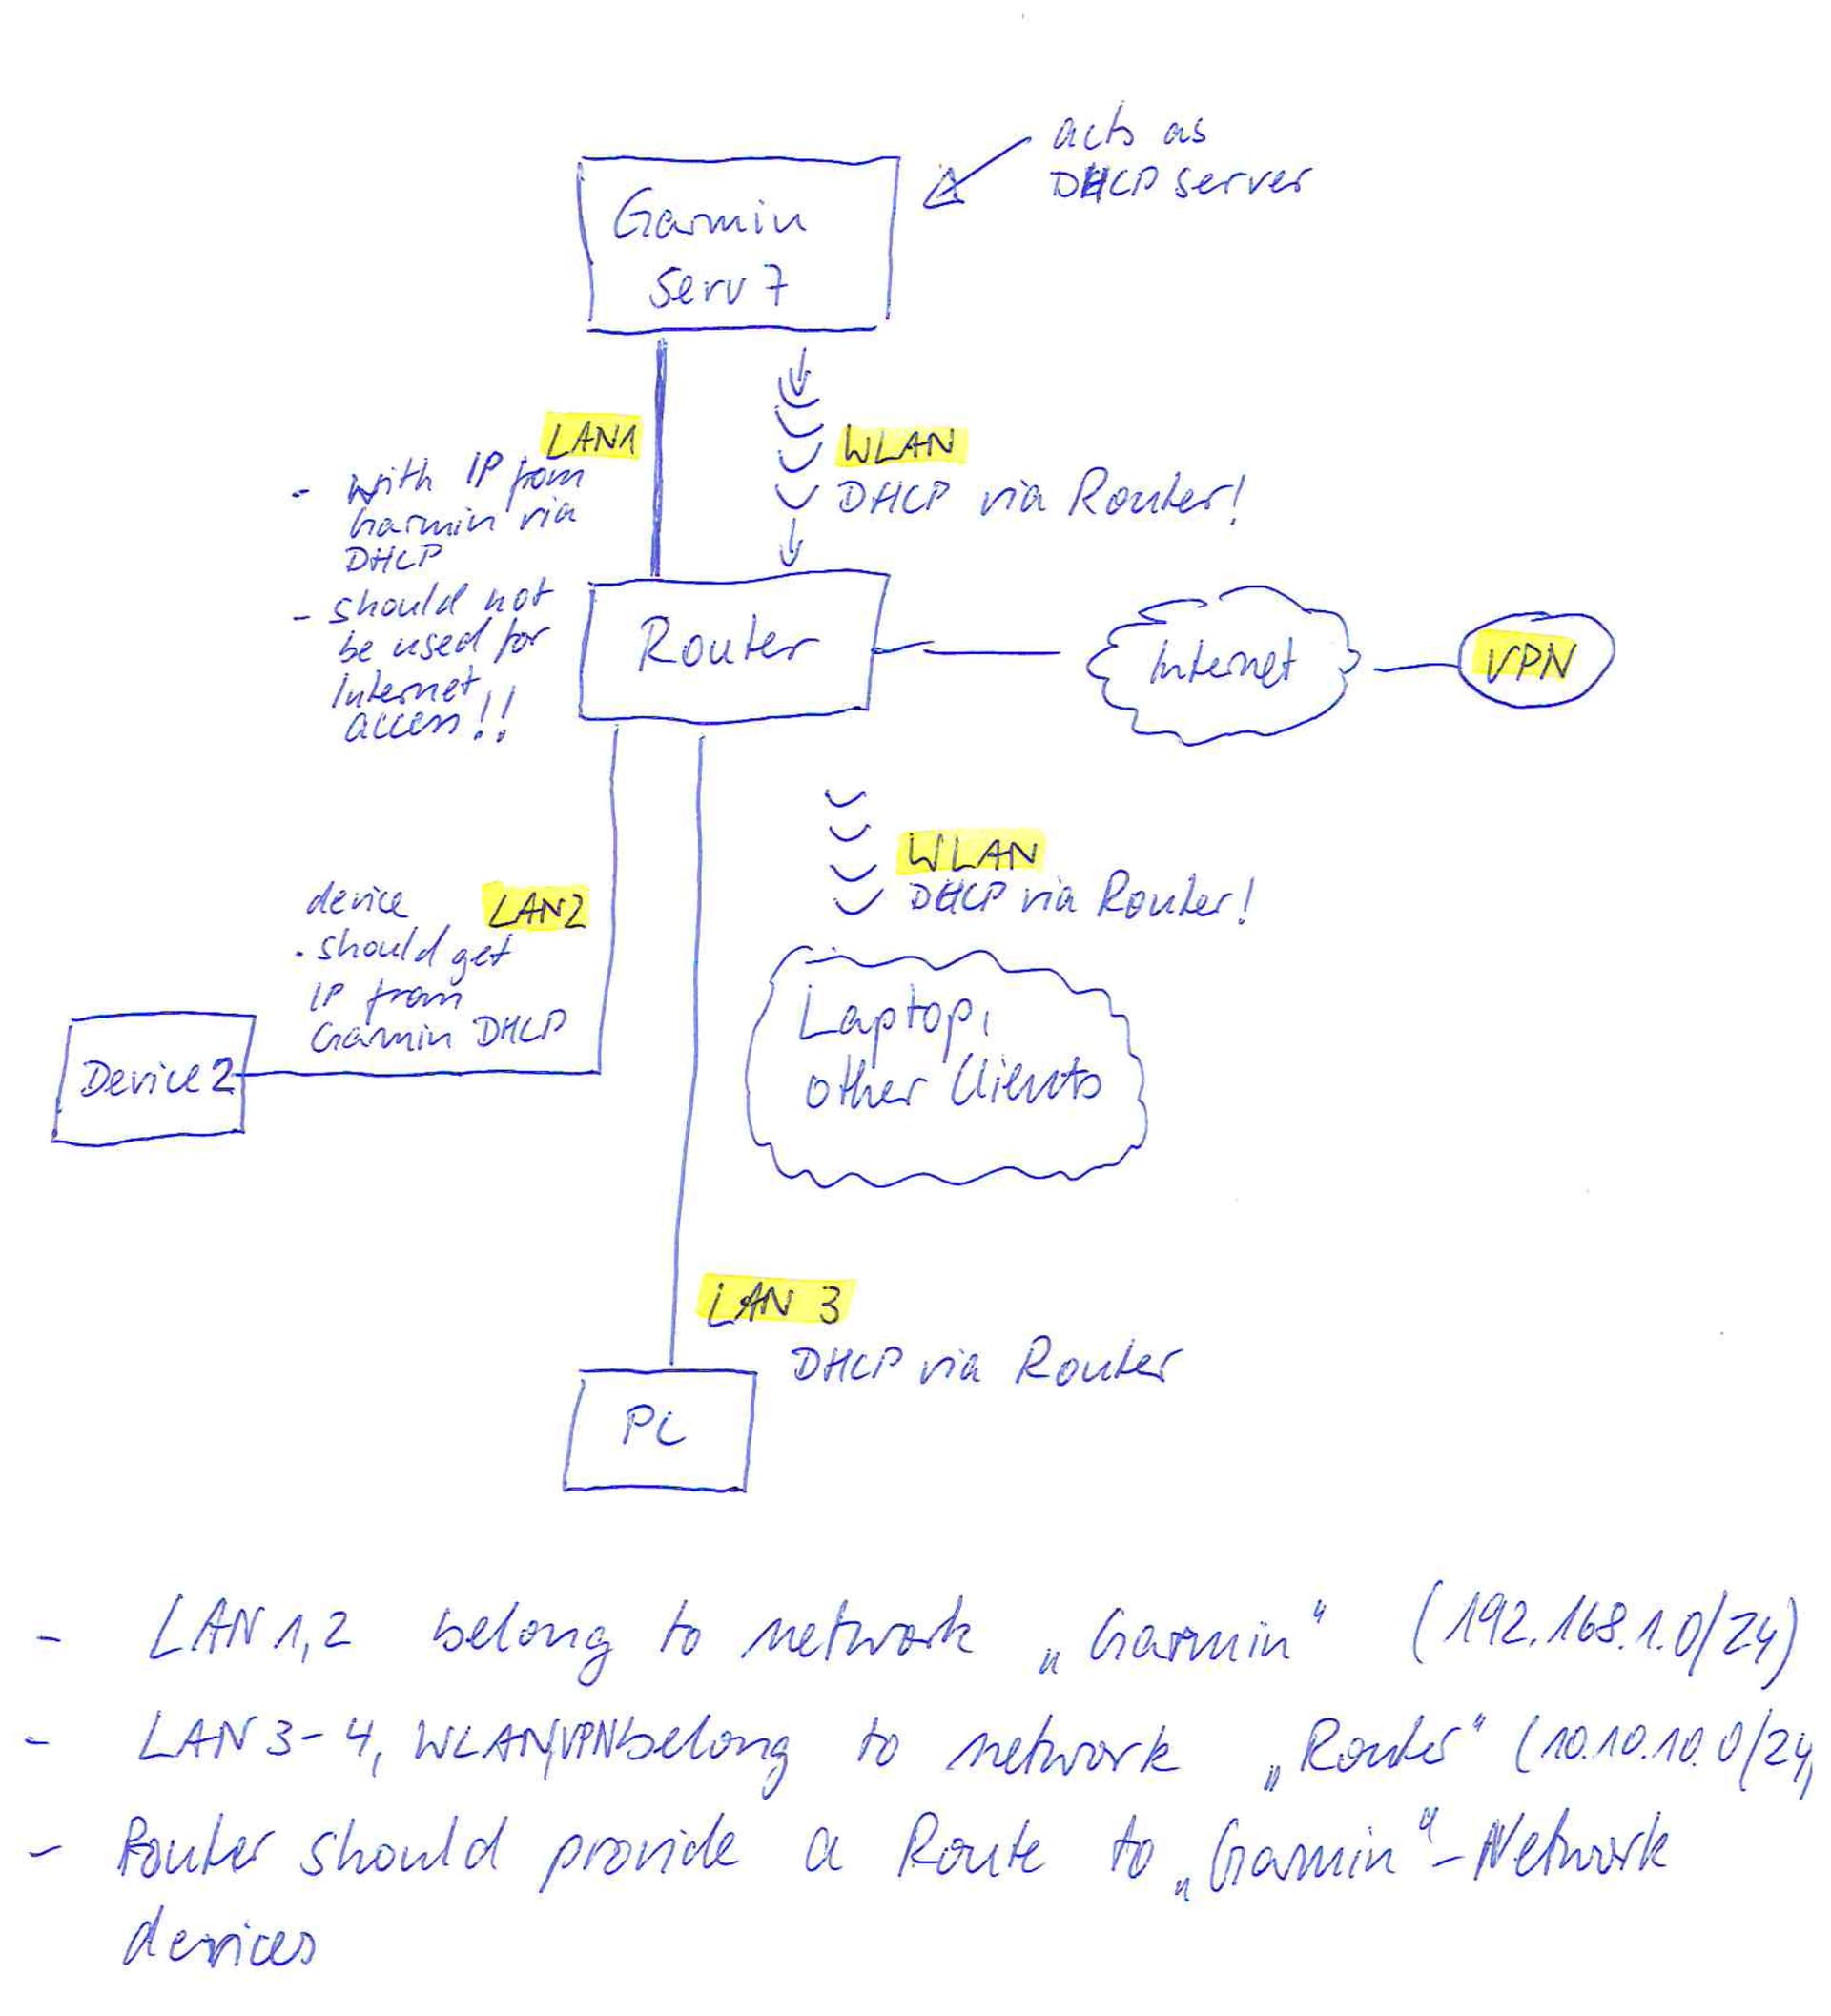 acts as
DHCP server
Garmin
Serv 7
LAN1
- with IP from
Garmin via
DHCP
- should not
be used for
Internet
access!!
WLAN
DHCP via Router!
Router
Internet
VPN
WLAN
DHCP via Router!
device
LAN2
- should get
IP from
Garmin DHCP
Device 2
Laptop,
other Clients
LAN 3
DHCP via Router
PC
- LAN 1,2 belong to network „Garmin“ (192.168.1.0/24)
- LAN 3-4, WLAN, VPN belong to network „Router“ (10.10.10.0/24)
- Router should provide a Route to „Garmin“-Network
devices